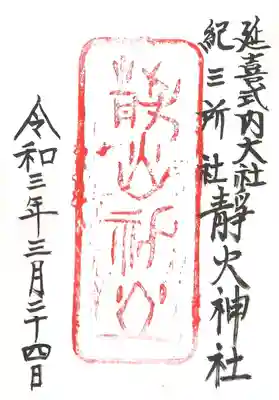 延喜式内大社
紀三所社
靜火神社
令和三年三月二十四日